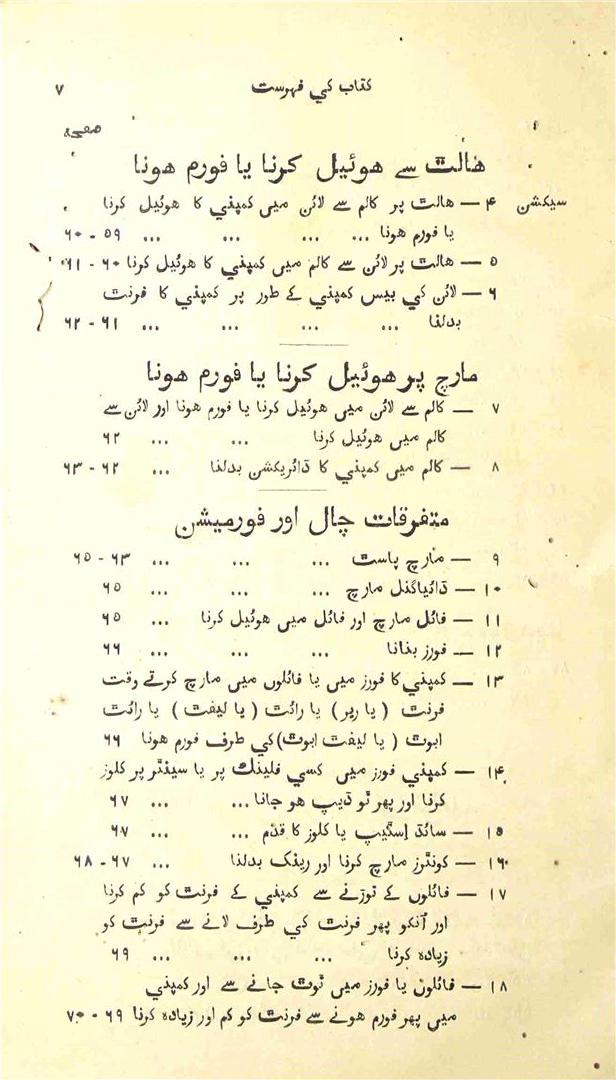 کتاب کي فہرست ۷
صفحہ
ھالٹ سے ھوئیل کرنا یا فورم ھونا
سیکشن ۴ — ھالٹ پر کالم سے لائن میں کمپني کا ھوئیل کرنا
یا فورم ھونا ... ... ... ... ۵۹ - ۶۰
۵ — ھالٹ پر لائن سے کالم میں کمپني کا ھوئیل کرنا ۶۰ - ۶۱
۶ — لائن کي بیس کمپني کے طور پر کمپني کا فرنٹ
بدلنا ... ... ... ... ۶۱ - ۶۲
مارچ پر ھوئیل کرنا یا فورم ھونا
۷ — کالم سے لائن میں ھوئیل کرنا یا فورم ھونا اور لائن سے
کالم میں ھوئیل کرنا ... ... ۶۲
۸ — کالم میں کمپني کا ڈائریکشن بدلنا ... ۶۲ - ۶۳
متفرقات چال اور فورمیشن
۹ — مارچ پاسٹ ... ... ... ۶۳ - ۶۵
۱۰ — ڈائیاگنل مارچ ... ... ... ۶۵
۱۱ — فائل مارچ اور فائل میں ھوئیل کرنا ... ۶۵
۱۲ — فورز بنانا ... ... ... ۶۶
۱۳ — کمپني کا فورز میں یا فائلوں میں مارچ کرتے وقت
فرنٹ ( یا ریر ) یا رائٹ ( یا لیفٹ ) یا رائٹ
ابوٹ ( یا لیفٹ ابوٹ) کي طرف فورم ھونا ۶۶
۱۴ — کمپني فورز میں کسي فلینک پر یا سینٹر پر کلوز
کرنا اور پھر ٹو ڈیپ ھو جانا ... ... ۶۷
۱۵ — سائڈ اسٹیپ یا کلوز کا قدم ... ... ۶۷
۱۶ — کونٹرز مارچ کرنا اور رینک بدلنا ... ۶۷ - ۶۸
۱۷ — فائلوں کے توڑنے سے کمپني کے فرنٹ کو کم کرنا
اور اُنکو پھر فرنٹ کي طرف لانے سے فرنٹ کو
زیادہ کرنا ... ... ... ۶۹
۱۸ — فائلون یا فورز میں ٹوٹ جانے سے اور کمپني
میں پھر فورم ھونے سے فرنٹ کو کم اور زیادہ کرنا ۶۹ - ۷۰